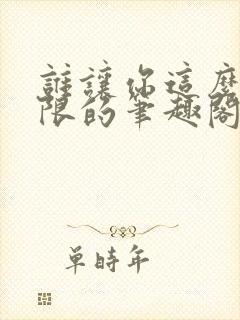 誰讓你這麼
限的筆趣閣
單時年